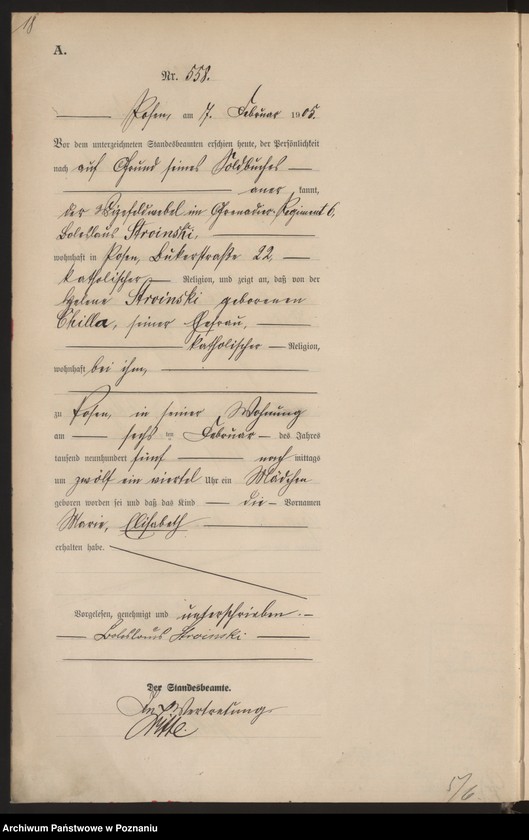 18
A.
Nr. 558.
Posen, am 7. Februar 1905.
Vor dem unterzeichneten Standesbeamten erschien heute, der Persönlichkeit
nach auf Grund seines Soldbuches
anerkannt,
der Vizefeldwebel im Grenadier-Regiment 6,
Boleslaus Stroinski,
wohnhaft in Posen, Bukerstraße 22,
katholischer Religion, und zeigt an, daß von der
Helene Stroinski geborenen
Chilla, seiner Ehefrau,
katholischer Religion,
wohnhaft bei ihm,
zu Posen, in seiner Wohnung
am sechs ten Februar des Jahres
tausend neunhundert fünf nach mittags
um zwölf ein viertel Uhr ein Mädchen
geboren worden sei und daß das Kind die Vornamen
Marie, Elisabeth
erhalten habe.
Vorgelesen, genehmigt und unterschrieben.
Boleslaus Stroinski
Der Standesbeamte.
In Vertretung
5/6
Archiwum Państwowe w Poznaniu